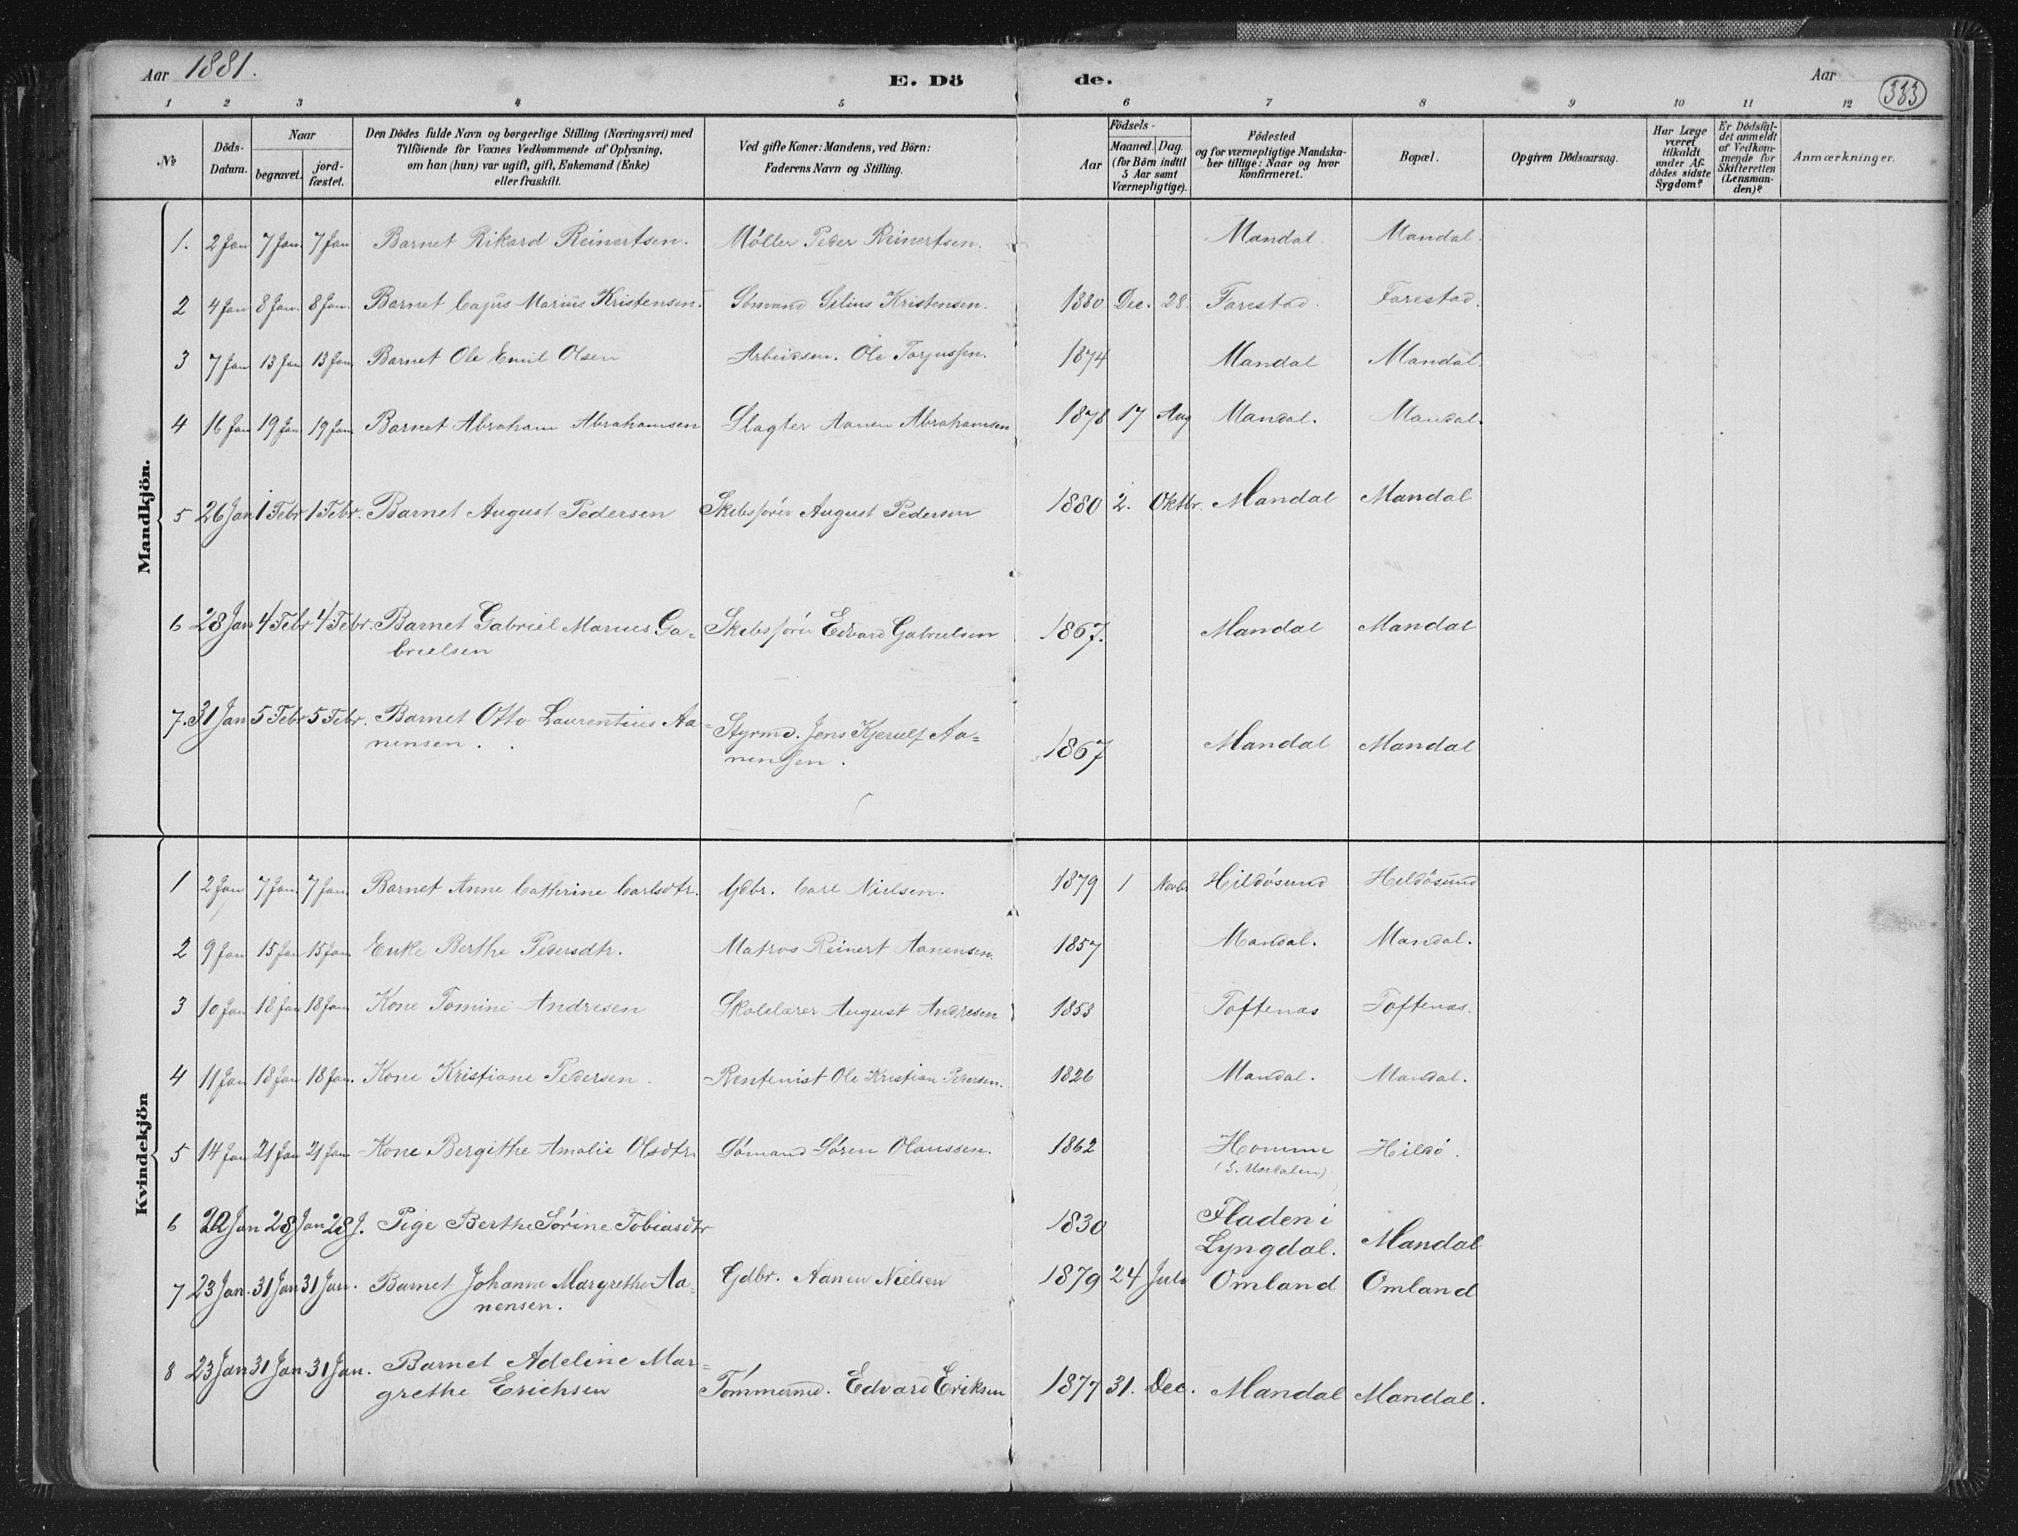 Aar 1881.
E. Dö
de.
Aar
383
1 2 3 4 5 6 7 8 9 10 11 12
No
Döds-
Datum.
Naar
begravet.
jord-
fæstet.
Den Dödes fulde Navn og borgerlige Stilling (Næringsvei) med
Tilföiende for Voxnes Vedkommende af Oplysning,
om han (hun) var ugift, gift, Enkemand (Enke)
eller fraskilt.
Ved gifte Koner: Mandens, ved Börn:
Faderens Navn og Stilling.
Födsels-
Aar
Maaned. Dag.
(for Börn indtil
5 Aar samt
Værnepligtige).
Födested
og for værnepligtige Mandska-
ber tillige: Naar og hvor
konfirmeret.
Bopæl.
Opgiven Dödsaarsag.
Har Læge
været
tilkaldt
under Af-
dödes sidste
Sygdom?
Er Dödsfal-
det anmeldt
af Vedkom-
mende for
Skifteretten
(Lensman-
den)?
Anmærkninger.
Mandkjön.
1. 2 Jan 7 Jan. 7 Jan Barnet Rikard Reinertsen. Møller Peder Reinertsen. Mandal. Mandal.
2 4 Jan 8 Jan. 8 Jan. Barnet Cajus Marius Kristensen. Sømand Silius Kristensen. 1880 Dec. 28. Farestad. Farestad.
3 7 Jan 13 Jan 13 Jan Barnet Ole Emil Olsen Arbeidsm. Ole Torjussen. 1874 Mandal Mandal.
4 16 Jan 19 Jan 19 Jan Barnet Abraham Abrahamsen Slagter Aanen Abrahamsen 1878 17 Aug Mandal. Mandal.
5 26 Jan 1 Febr 1 Febr. Barnet August Pedersen Skibsfører August Pedersen 1880 2. Oktbr. Mandal Mandal
6 28 Jan 4 Febr 4 Febr. Barnet Gabriel Marius Ga- Skibsfører Edvard Gabrielsen 1867. Mandal Mandal
brielsen
7. 31 Jan 5 Febr 5 Febr. Barnet Otto Laurentius Aa- Styrmd. Jens Kjerulf Aa= 1867 Mandal Mandal
nensen. nensen.
Kvindekjön
1 2 Jan 7 Jan. 7 Jan. Barnet Anne Cathrine Carlsdtr. Gdbr. Carl Nielsen. 1879 1 Novbr Hildøsund Hildøsund
2 9 Jan 15 Jan 15 Jan Enke Berthe Pedersdtr. Matros Reinert Aanensen. 1857 Mandal. Mandal.
3 10 Jan 18 Jan 18 Jan Kone Tomine Andresen Skolelærer August Andresen 1853 Toftenæs Toftenæs.
4 11 Jan 18 Jan 18 Jan. Kone Kristiane Pedersen. Rentenist Ole Kristian Pedersen. 1826 Mandal. Mandal.
5 14 Jan 21 Jan 21 Jan Kone Bergithe Amalie Olsdtr. Sømand Søren Olaussen. 1862 Homme Hildø.
(S. Undalen).
6 22 Jan 28 Jan 28 J. Pige Berthe Sørine Tobiasdtr 1830 Fladen i
Lyngdal. Mandal
7 23 Jan. 31 Jan 31 Jan. Barnet Johanne Margrethe Aa- Gdbr. Aanen Nielsen 1879 24 Juli Omland Omland
nensen.
8 23 Jan 31 Jan. 31 Jan. Barnet Adeline Mar= Tømmermd. Edvard Eriksen 1877 31. Dec. Mandal Mandal.
grethe Erichsen